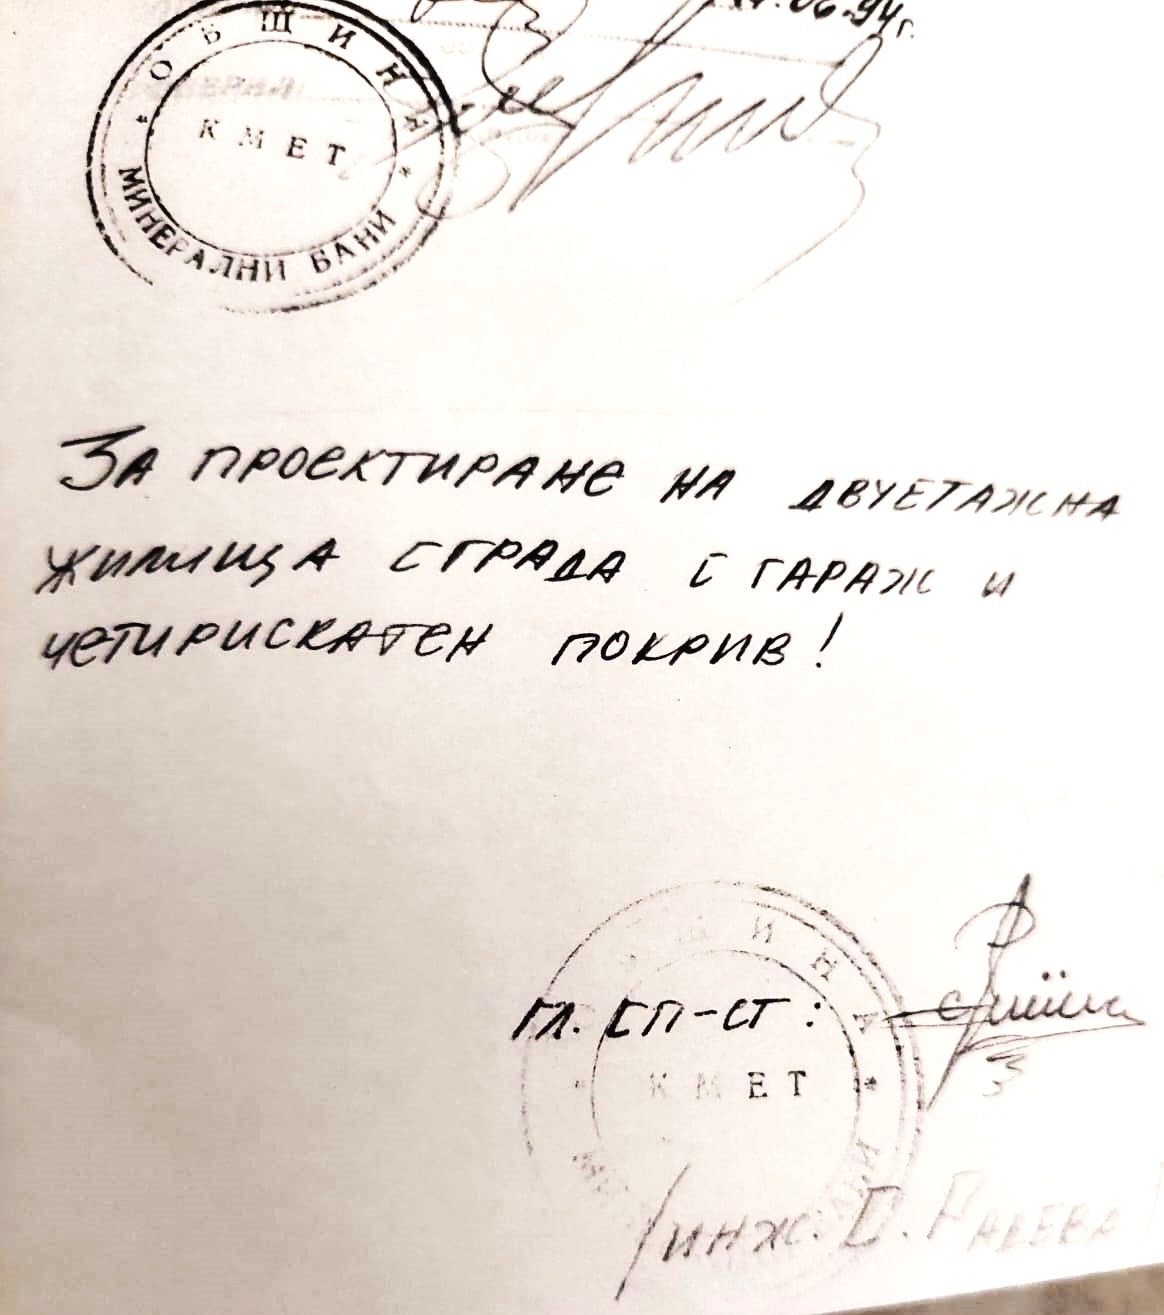 06.94г.
ОБЩИНА
КМЕТ
МИНЕРАЛНИ БАНИ
За проектиране на двуетажна
жилища сграда с гараж и
четирискатен покрив!
Гл. сп-ст:
КМЕТ
/инж. Д. Радева/